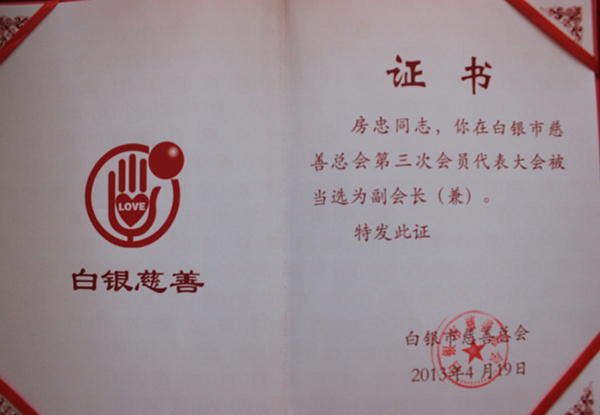 LOVE
白银慈善
证书
房忠同志，你在白银市慈
善总会第三次会员代表大会被
当选为副会长（兼）。
特发此证
白银市慈善总会
2013年4月19日